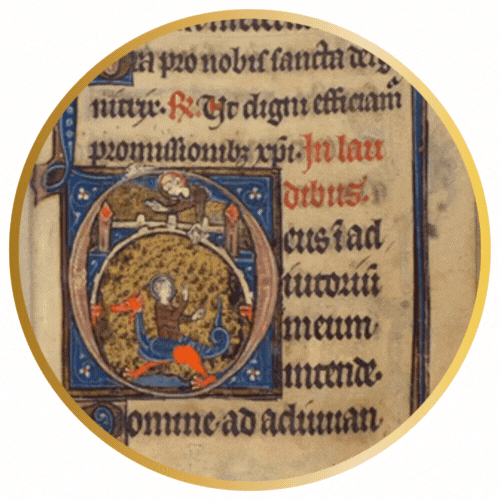 Ora pro nobis sancta dei ge
nitrix. R. Ut digni efficiam
promissionibz xpi. In lau
dibus.
Deus i ad
iutoriu
meum
intende.
Domine ad adiuuan